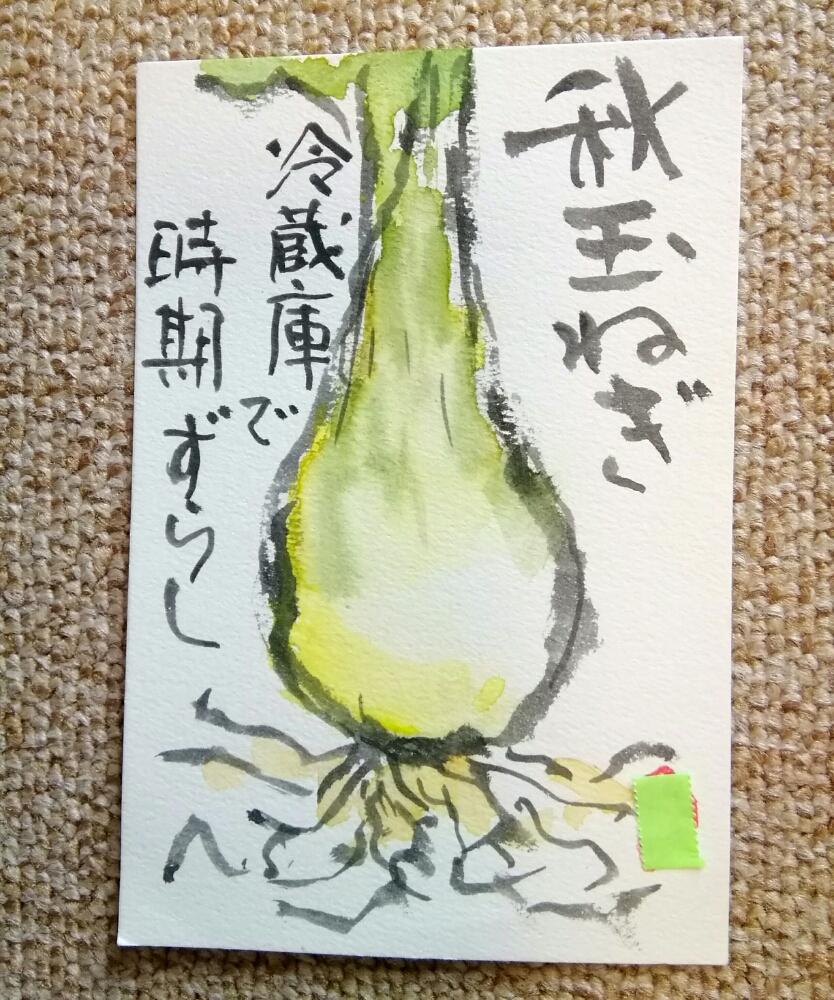 秋玉ねぎ
冷蔵庫で
時期ずらし